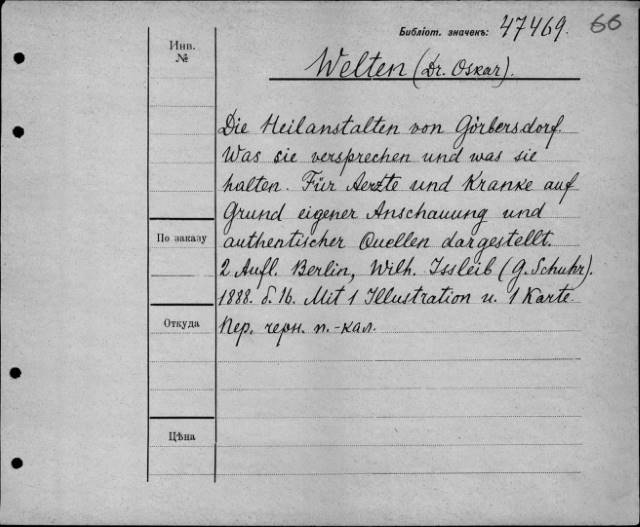 Библіот. значекъ: 47469. 66
Инв.
№
Welten (Dr. Oskar).
Die Heilanstalten von Görbersdorf.
Was sie versprechen und was sie
halten. Für Aerzte und Kranke auf
Grund eigener Anschauung und
По заказу
authentischer Quellen dargestellt.
2 Aufl. Berlin, Wilh. Issleib (G. Schuhr).
1888. 8. 16. Mit 1 Illustration u. 1 Karte
Откуда
Пер. черн. п.-кал.
Цѣна